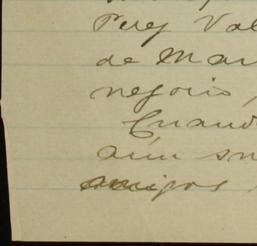 Perez Val
de Mar
negocio,
Cuand
aún su
amigos